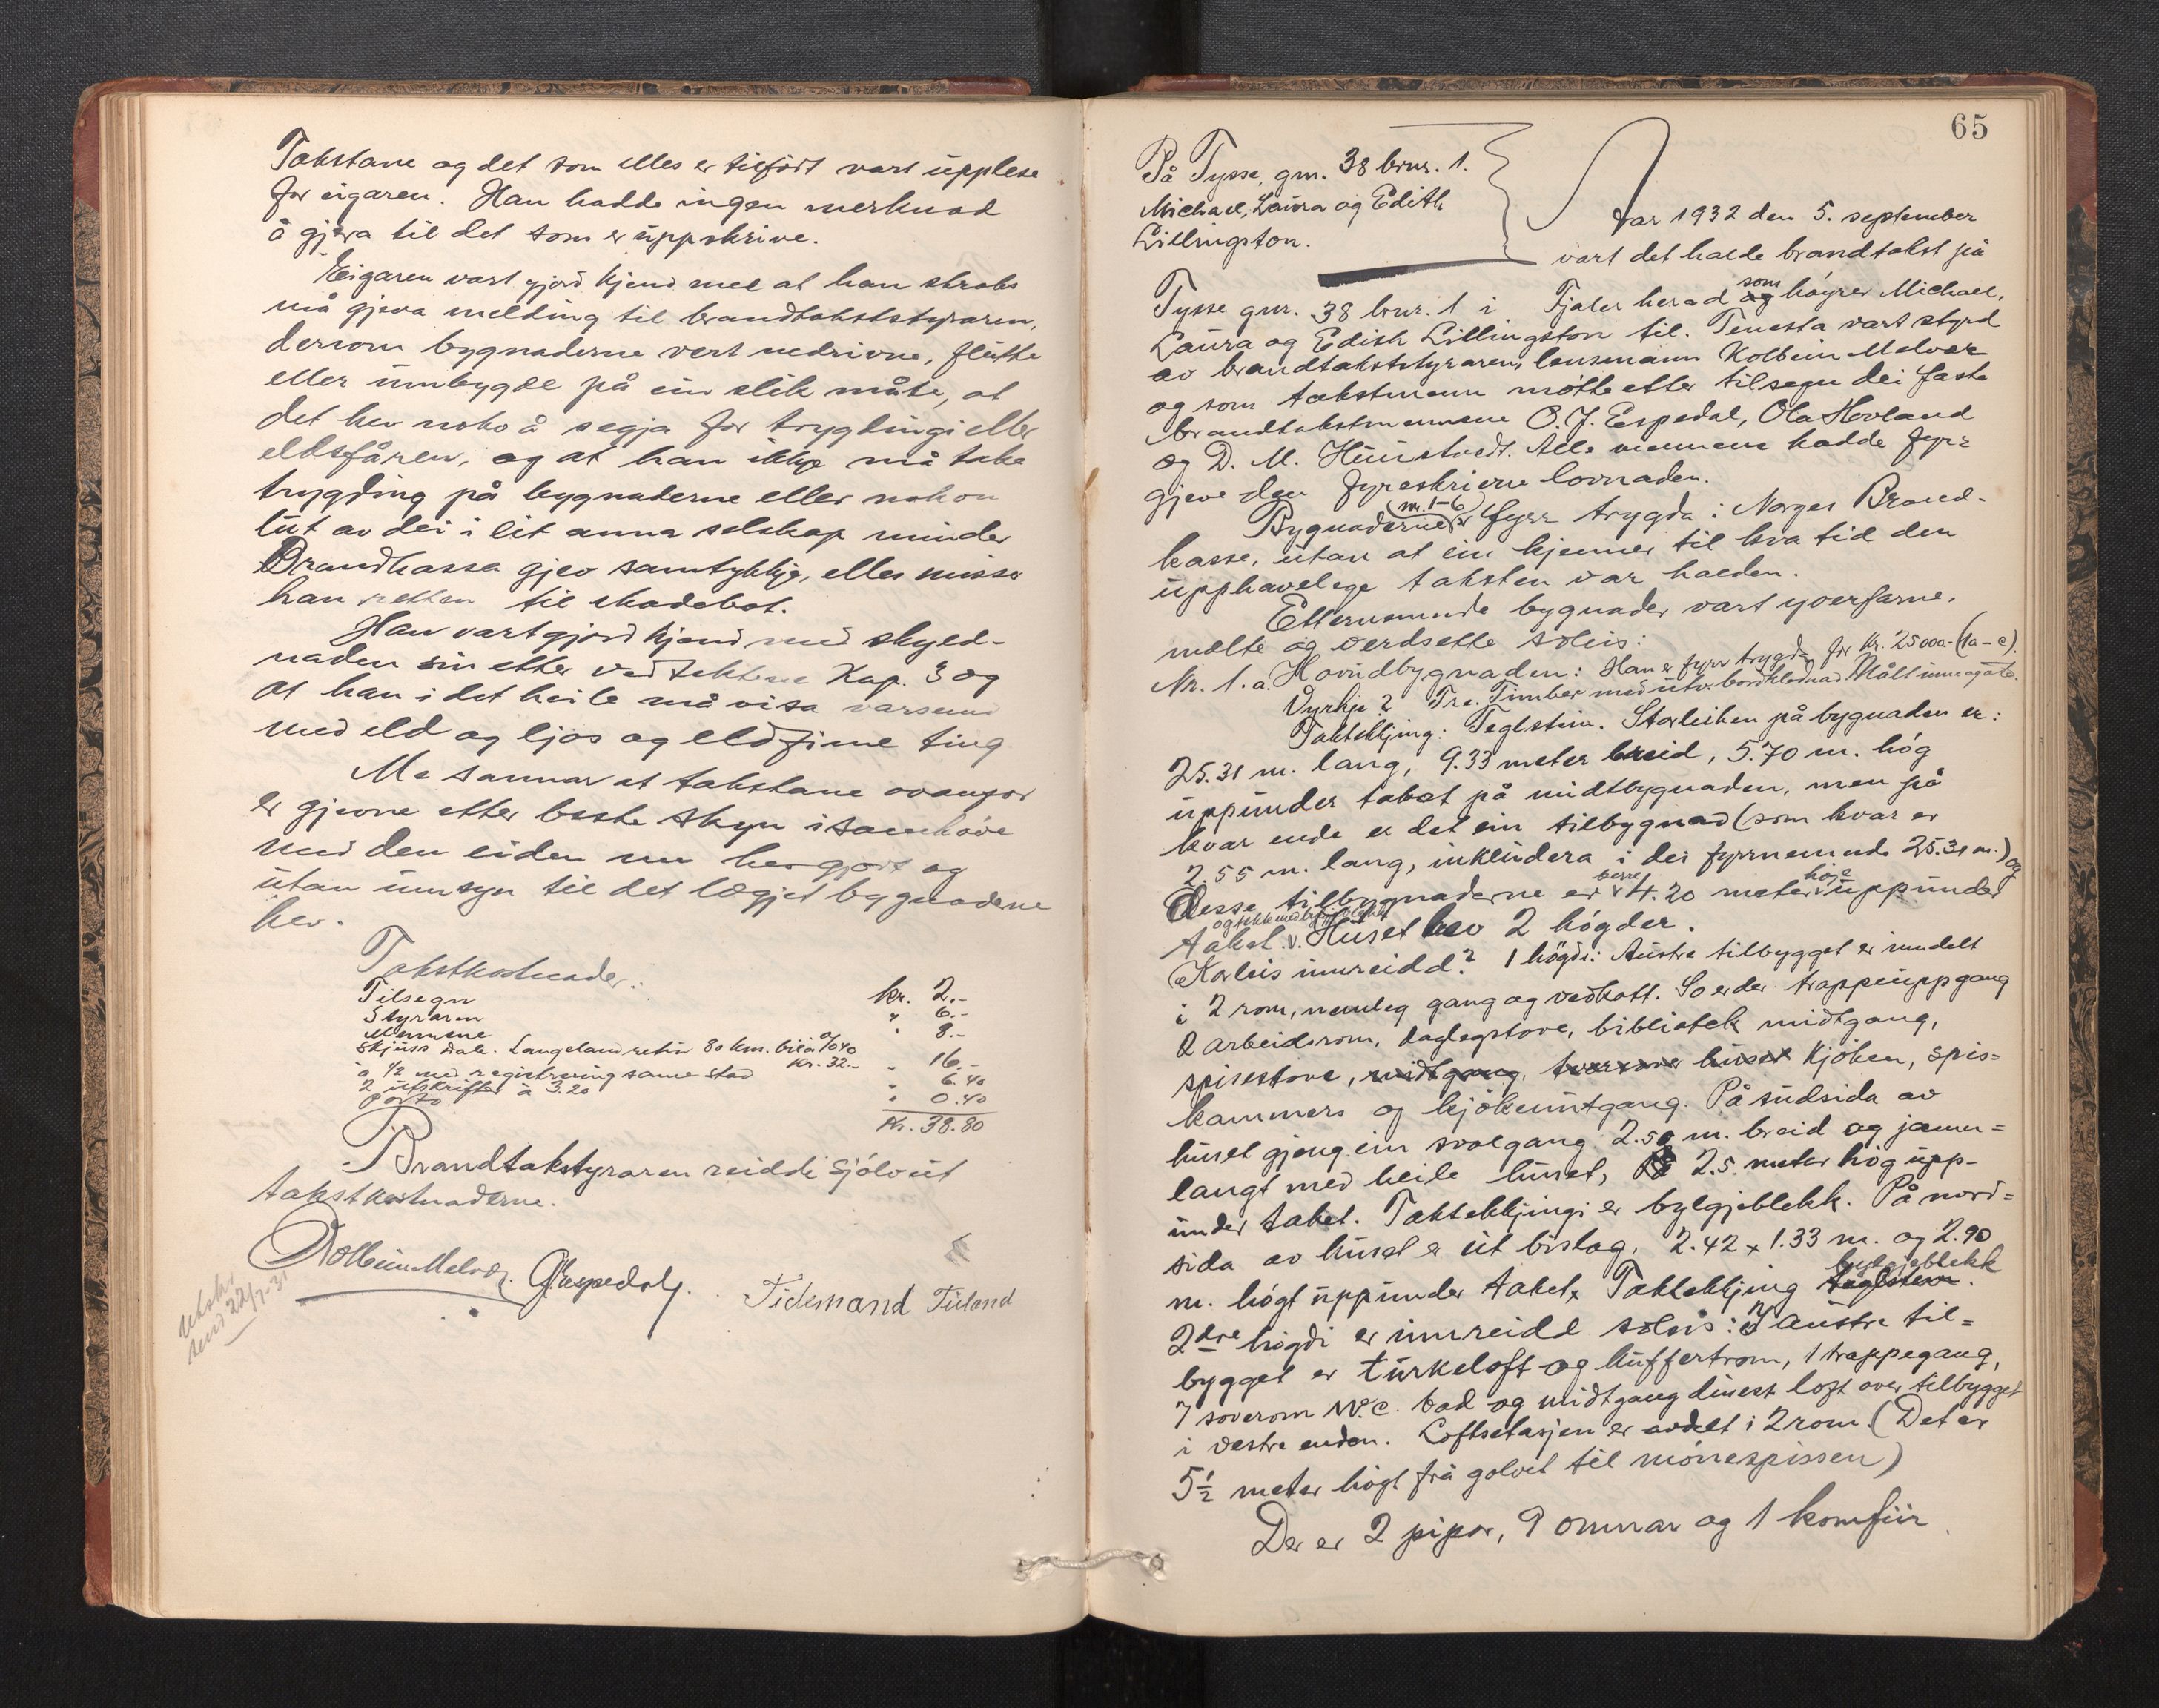 Takstane og det som elles er tilført vart upplese
for eigaren. Han hadde ingen merknad
å gjera til det som er uppskrive.
Eigaren vart gjord kjend med at han straks
må gjeva melding til brandtakststyraren,
dersom bygnaderne vert nedrivne, flutte
eller umbygde på ein slik måte, at
det hev noko å segja for trygdingi eller
eldsfåren, og at han ikkje må taka
trygding på bygnaderne eller nokon
lut av dei i eit anna selskap minder
Brandkassa gjev samtykkje, elles misser
han retten til skadebot.
Han vart gjord kjend med skyld-
naden sin etter vedtektene Kap. 3 og
at han i det heile må visa varsemd
med eld og ljos og eldfime ting.
Me sannar at takstane ovanfor
er gjevne etter beste skyn i samhøve
med den eiden me hev gjort og
utan umsyn til det lægjet bygnaderne
hev.
Takstkostnader:
Tilsegn kr. 2.-
Styraren " 6.-
Mennene " 8.-
Skjuss Dale. Langeland retur 80 km. bil a 0/040
kr. 32.-
a 1/2 med registrering same stad " 16.-
2 utskrifter à 3.20 " 6.40
porto " 0.40
Kr. 38.80
Brandtakstyraren reidde sjølv ut
takstkostnaderne.
Kolbein Melvær. O J Espedal.
Tidemand Tuland
Utskr.
send 22/7-31
65
På Tysse, gnr. 38 bnr. 1.
Michael, Laura og Edith
Lillingston.
Aar 1932 den 5. september
vart det halde brandtakst på
Tysse gnr. 38 bnr. 1 i Fjaler herad og som høyrer Michael,
Laura og Edith Lillingston til. Tenesta vart styrd
av brandtakststyraren, lensmann Kolbein Melvær
og som takstmenn møtte etter tilsegn dei faste
brandtakstmennene O. J. Espedal, Ola Hovland
og D. M. Hunstvedt. Alle mennene hadde fyrr
gjeve den fyreskrivne lovnaden.
Bygnaderne (nr. 1-6) er fyrr trygda i Norges Brand-
kasse, utan at ein kjenner til kva tid den
upphavelege taksten var halden.
Etternemnde bygnader vart yverfarne,
mælte og verdsette soleis:
Nr. 1. a. Hovudbygnaden: Han er fyrr trygda for kr. 25000.- (1a-c).
Vyrkje? Tre. Timber med utv. bordklædnad. Målt inne og ute.
Taktekkjing: Teglstein. Storleiken på bygnaden er:
25.31 m. lang, 9.33 meter breid, 5.70 m. høg
uppunder taket på midtbygnaden, men på
kvar ende er det ein tilbygnad (som kvar er
2.55 m. lang, inkludera i dei fyrrnemnde 25.31 m.) og
desse tilbygnaderne er berre 4.20 meter høge uppunder
taket og tekkt med bylgjeblekk. Huset hev 2 høgder.
Korleis innreidd? 1 høgdi: Austre tilbygget er inndelt
i 2 rom, nemleg gang og vedkott. So er der trappeuppgang
2 arbeidsrom, daglegstove, bibliotek midtgang,
spisestove, midtgang, tversover huset kjøken, spis=
kammers og kjøkenutgang. På sudsida av
huset gjeng ein svalgang 2.50 m. breid og jamn=
langt med heile huset, 2.5. meter høg upp-
under taket. Taktekkjingi er bylgjeblekk. På nord=
sida av huset er eit bislag, 2.42 x 1.33 m. og 2.90
m. høgt uppunder taket, Taktekkjing teglstein bylgjeblekk.
2dre høgdi er innreidd soleis: I austre til=
bygget er turkeloft og kuffertrom, 1 trappegang,
7 soverom W.C. bad og midtgang dinest loft over tilbygget
i vestre enden. Loftsetasjen er avdelt i 2 rom. (Det er
5 1/2 meter høgt frå golvet til mønespissen)
Der er 2 pipor, 9 omnar og 1 komfür.